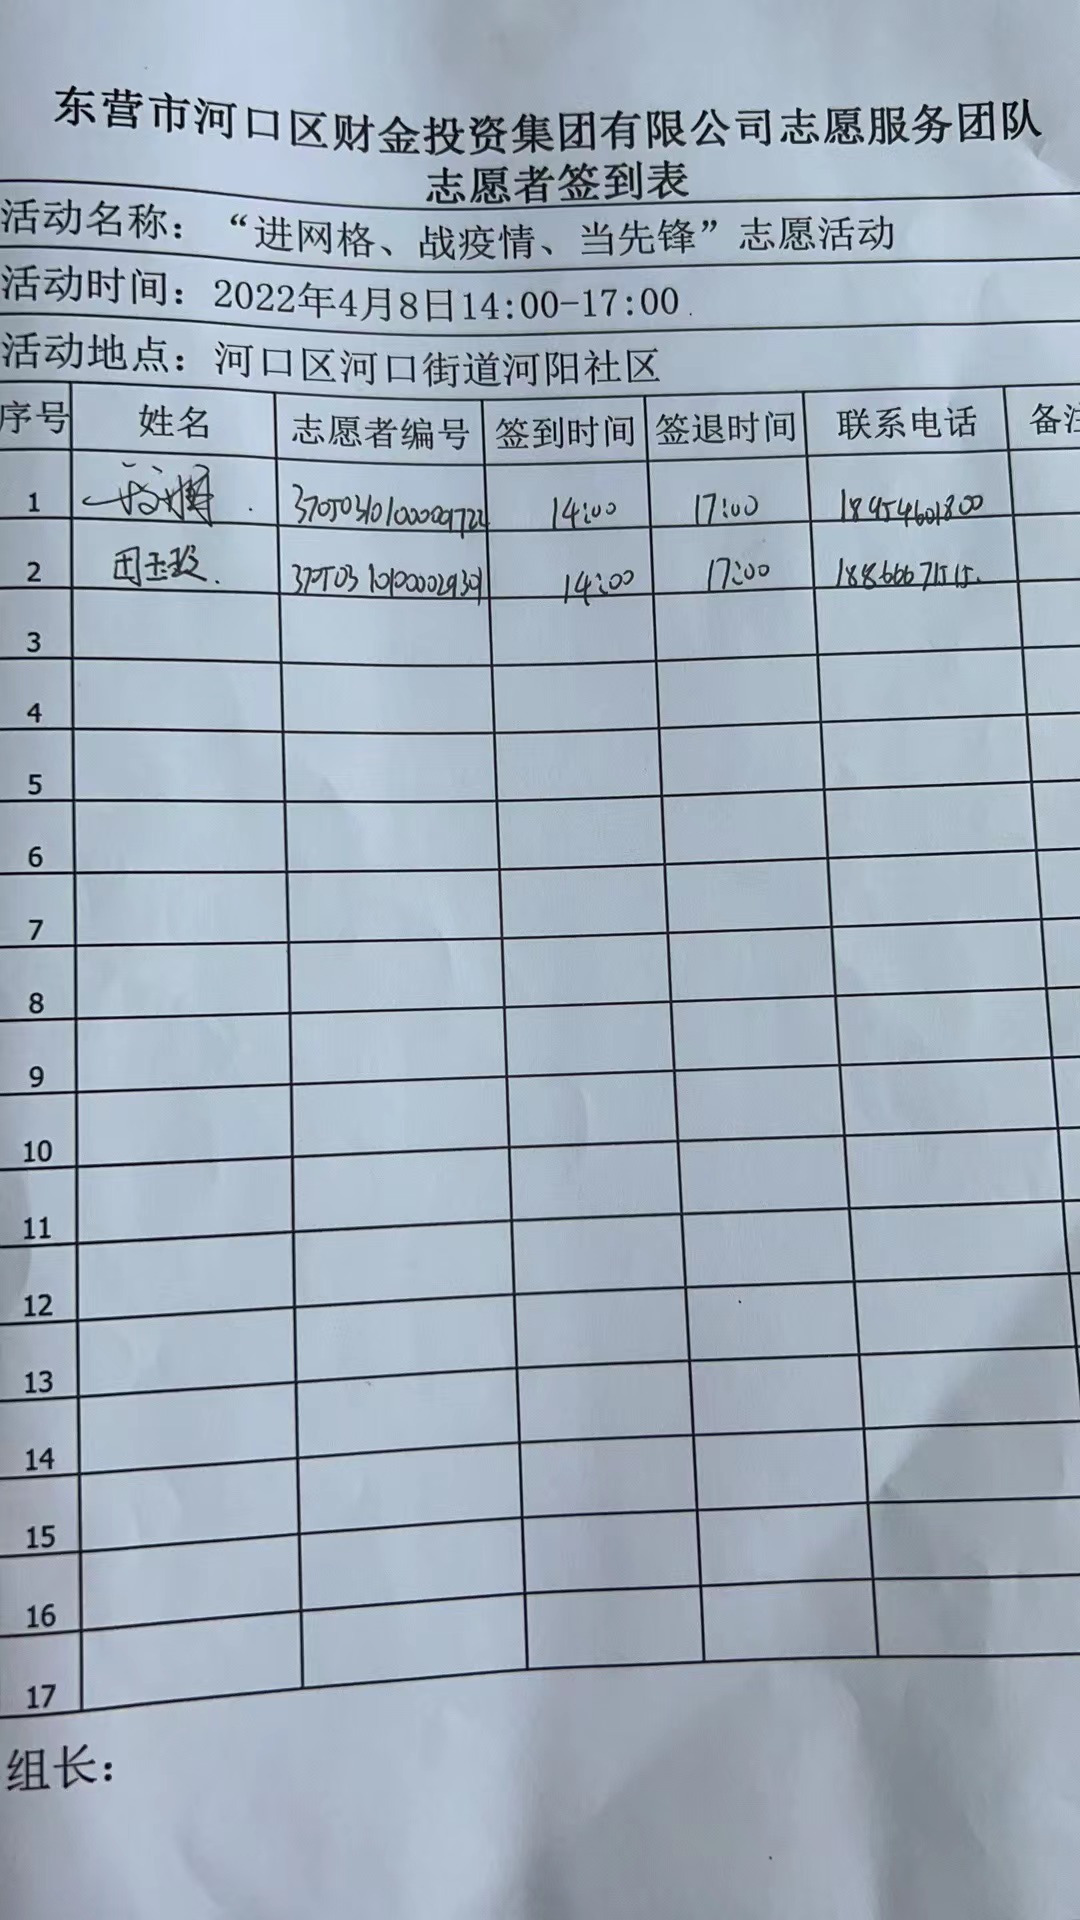 东营市河口区财金投资集团有限公司志愿服务团队
志愿者签到表
活动名称：“进网格、战疫情、当先锋”志愿活动
活动时间：2022年4月8日14:00-17:00
活动地点：河口区河口街道河阳社区
序号 姓名 志愿者编号 签到时间 签退时间 联系电话 备注
1 14:00 17:00 18954601800
2 14:00 17:00 18866671515
3
4
5
6
7
8
9
10
11
12
13
14
15
16
17
组长：